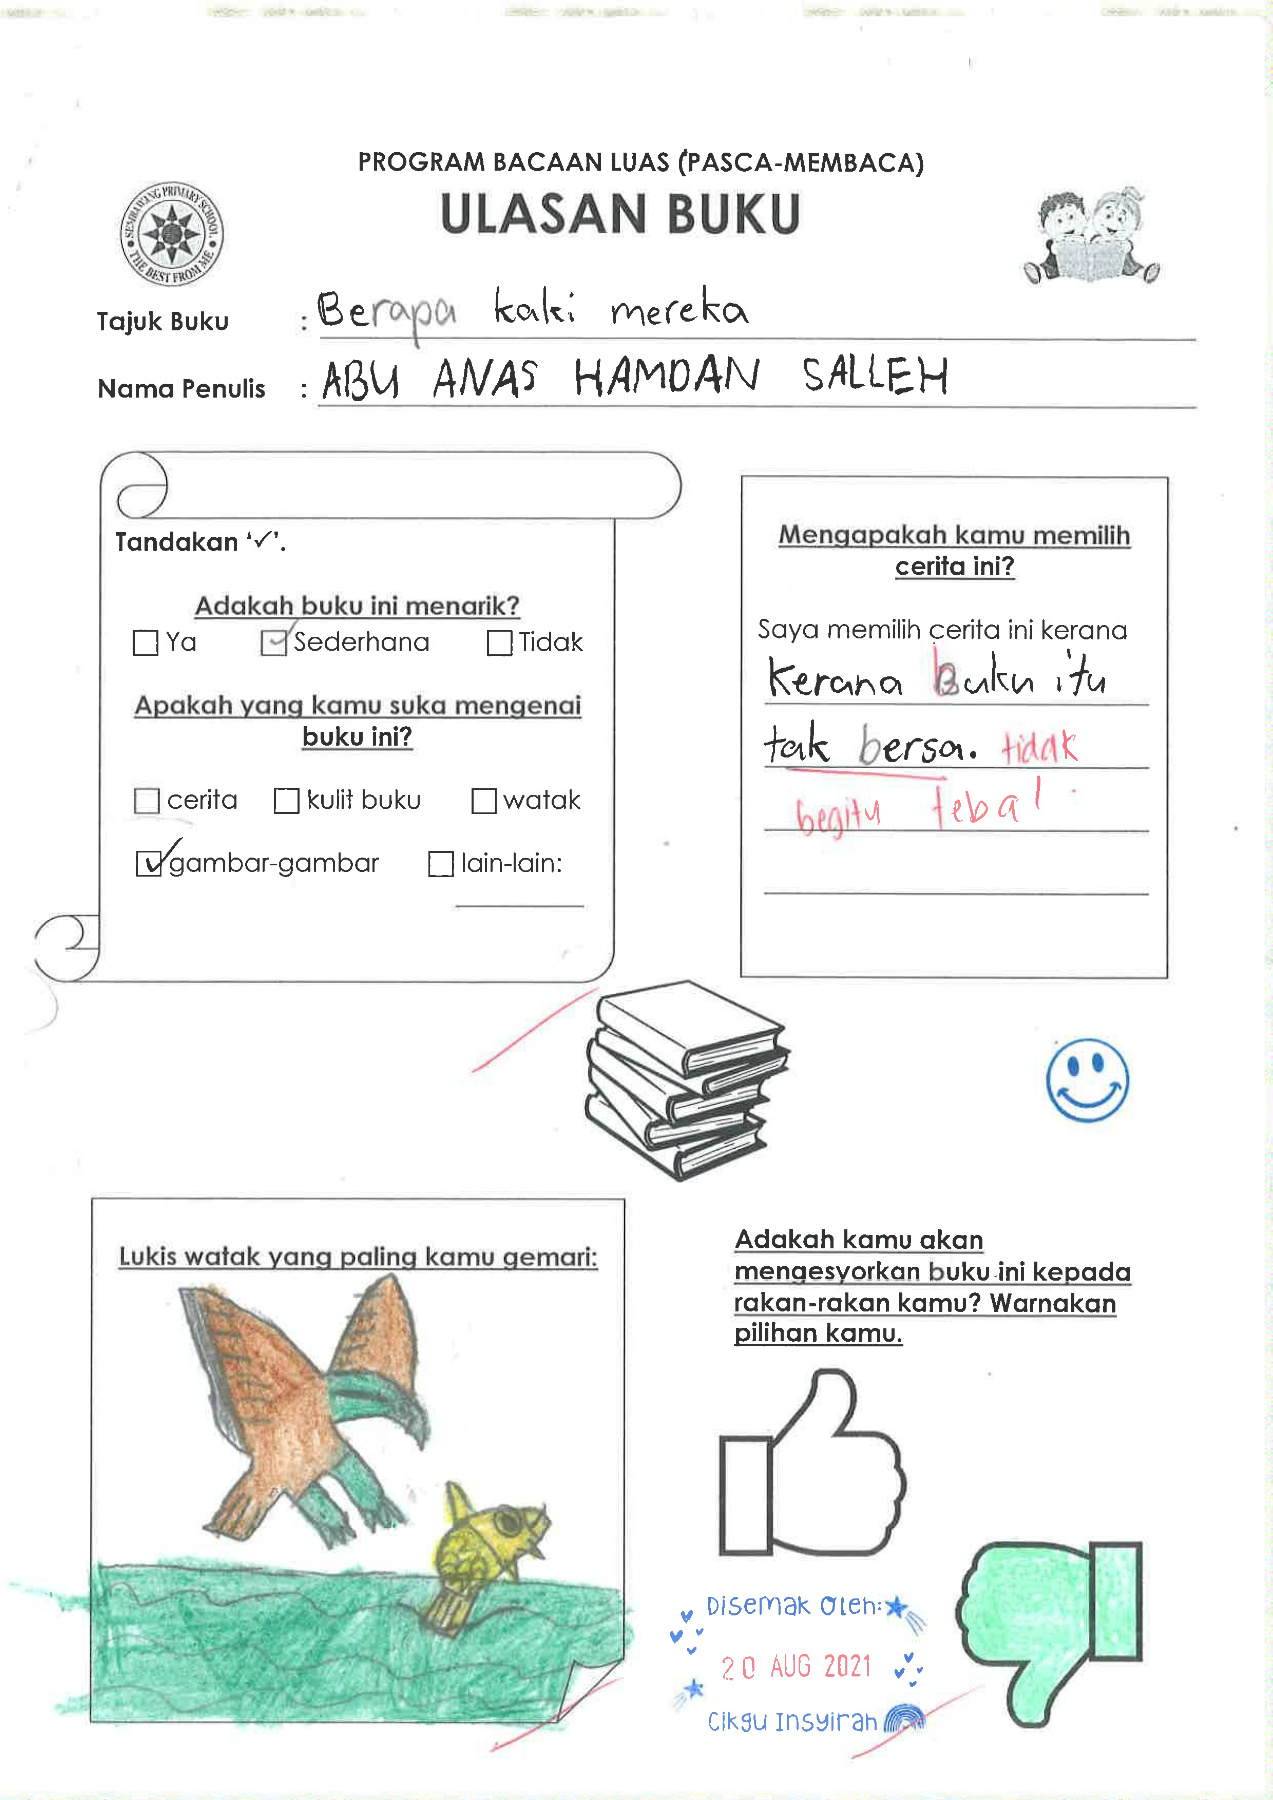 PROGRAM BACAAN LUAS (PASCA-MEMBACA)
ULASAN BUKU
SEMBAWANG PRIMARY SCHOOL
THE BEST FROM ME
Tajuk Buku : Berapa kaki mereka
Nama Penulis : ABU ANAS HAMDAN SALLEH
Tandakan ‘✓’.
Adakah buku ini menarik?
Ya Sederhana Tidak
Apakah yang kamu suka mengenai
buku ini?
cerita kulit buku watak
gambar-gambar lain-lain:
Mengapakah kamu memilih
cerita ini?
Saya memilih cerita ini kerana
Kerana Buku itu
tak bersa. tidak
begitu tebal.
Lukis watak yang paling kamu gemari:
Adakah kamu akan
mengesyorkan buku ini kepada
rakan-rakan kamu? Warnakan
pilihan kamu.
Disemak Oleh:
20 AUG 2021
Cikgu Insyirah